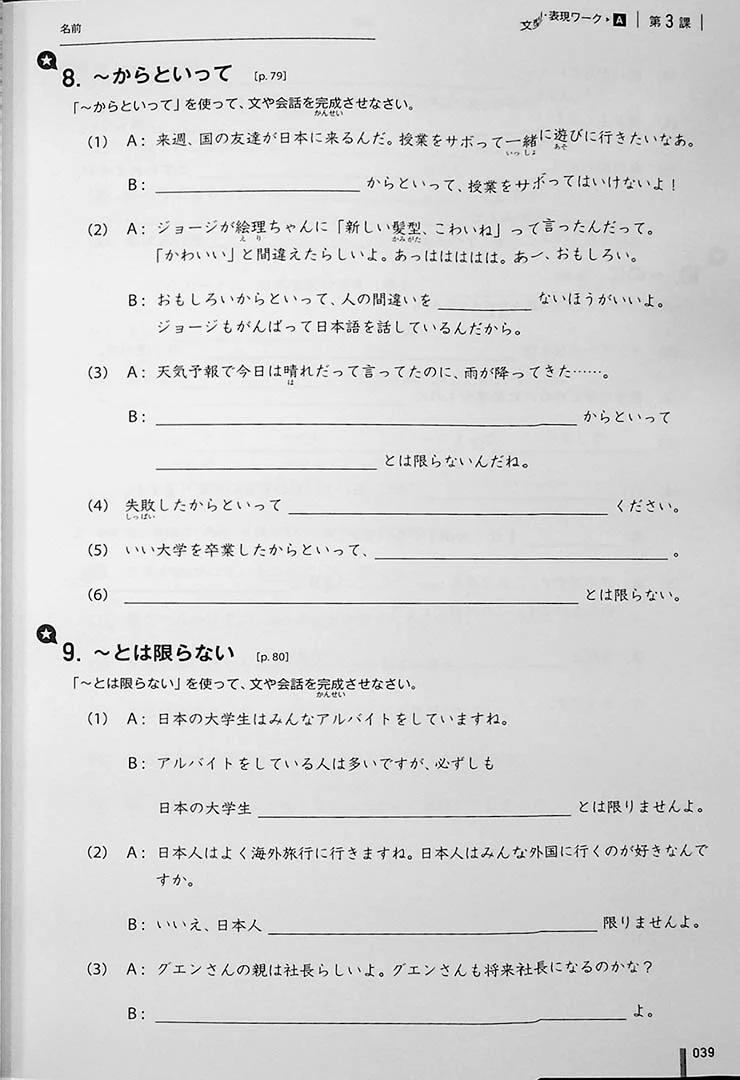 名前
文型・表現ワーク▶A | 第3課 |
★
8. ～からといって [p.79]
「～からといって」を使って、文や会話を完成させなさい。
かんせい
(1) A: 来週、国の友達が日本に来るんだ。授業をサボって一緒に遊びに行きたいなあ。
いっしょ あそ
B: ＿＿＿ からといって、授業をサボってはいけないよ！
(2) A: ジョージが絵理ちゃんに「新しい髪型、こわいね」って言ったんだって。
えり かみがた
「かわいい」と間違えたらしいよ。あっはははははは。あー、おもしろい。
B: おもしろいからといって、人の間違いを ＿＿＿ ないほうがいいよ。
ジョージもがんばって日本語を話しているんだから。
(3) A: 天気予報で今日は晴れだって言ってたのに、雨が降ってきた……。
は
B: ＿＿＿ からといって
＿＿＿ とは限らないんだね。
(4) 失敗したからといって ＿＿＿ ください。
しっぱい
(5) いい大学を卒業したからといって、＿＿＿。
(6) ＿＿＿ とは限らない。
★
9. ～とは限らない [p.80]
「～とは限らない」を使って、文や会話を完成させなさい。
かんせい
(1) A: 日本の大学生はみんなアルバイトをしていますね。
B: アルバイトをしている人は多いですが、必ずしも
日本の大学生 ＿＿＿ とは限りませんよ。
(2) A: 日本人はよく海外旅行に行きますね。日本人はみんな外国に行くのが好きなんで
すか。
B: いいえ、日本人 ＿＿＿ 限りませんよ。
(3) A: グエンさんの親は社長らしいよ。グエンさんも将来社長になるのかな？
B: ＿＿＿ よ。
039